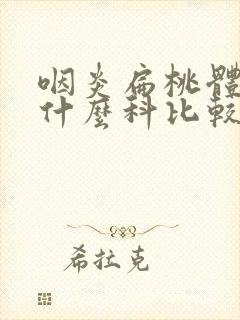 咽炎扁桃體
什麼科比較
希拉克